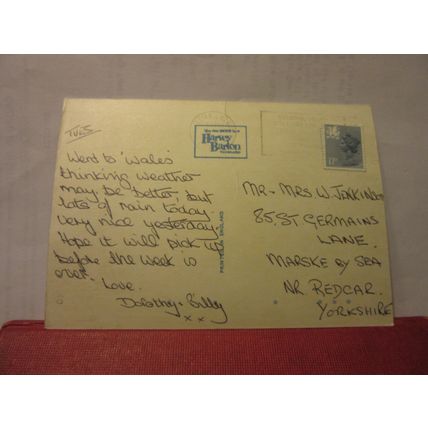 TUES
Went to 'Wales'
thinking weather
may be better, but
lots of rain today
very nice yesterday.
Hope it will pick up
before the week is
over.
Love.
Dorothy · Billy
x x
Harvey
Barton
PRINTED IN ENGLAND
MR - MRS W. JENKINS
85, ST GERMAINS
LANE.
MARSKE BY SEA
NR REDCAR.
YORKSHIRE